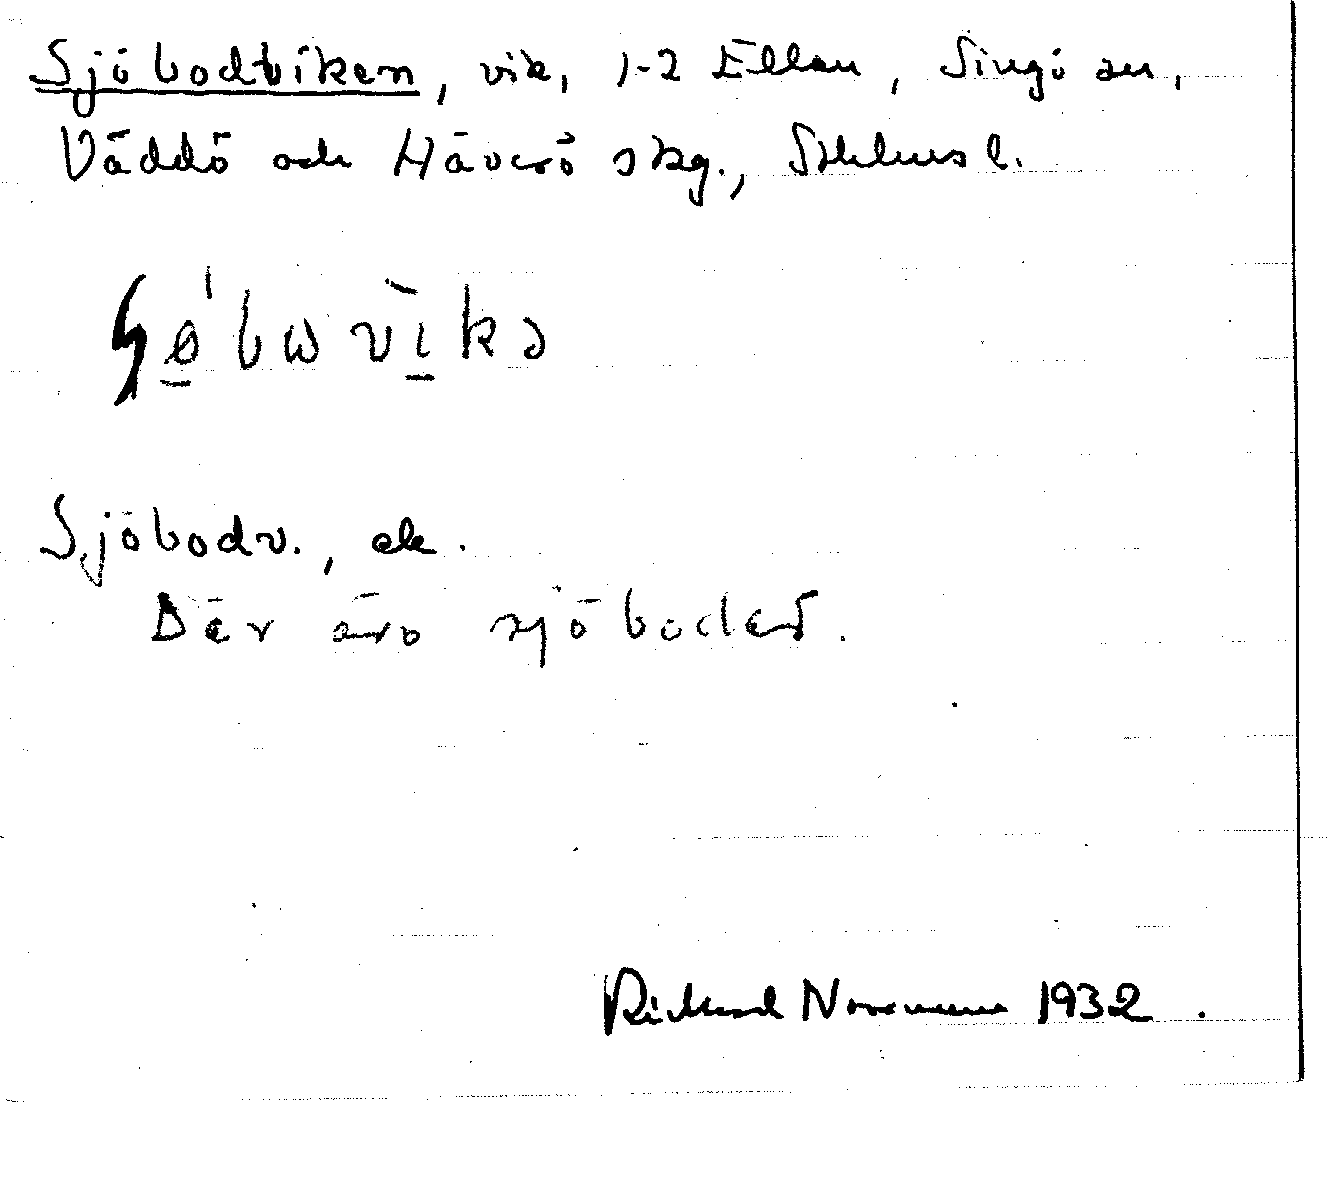 Sjöbodviken, vik, 1-2 Ellan, Singö sn,
Väddö och Häverö skg., Sthlms l.
Sjöbodv., ek.
Där äro sjöbodar.
Rickard Norrman 1932.